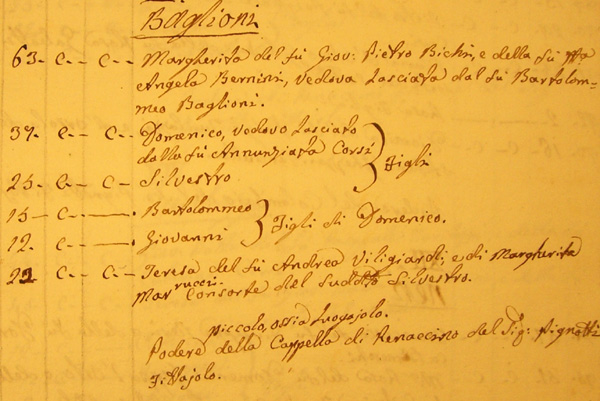 Baglioni
63- C- - C- - Margherita del fù Giov: Pietro Bichi, e della fù
Angela Bernini, vedova lasciata dal fù Bartolom-
meo Baglioni.
37. C- - C- - Domenico, vedovo lasciato
dalla fù Annunziata Corsi
25- C- - C- - Silvestro
Figli
15- C- Bartolommeo
12. C- Giovanni
Figli di Domenico.
22 C- - C- - Teresa del fù Andrea Viligiardi, e di Margherita
Marrucci. Consorte del suddto Silvestro.
piccolo, ossia Luogajolo.
Podere della Cappella di Renaccino del Sig: Pignatti
Fittajolo.